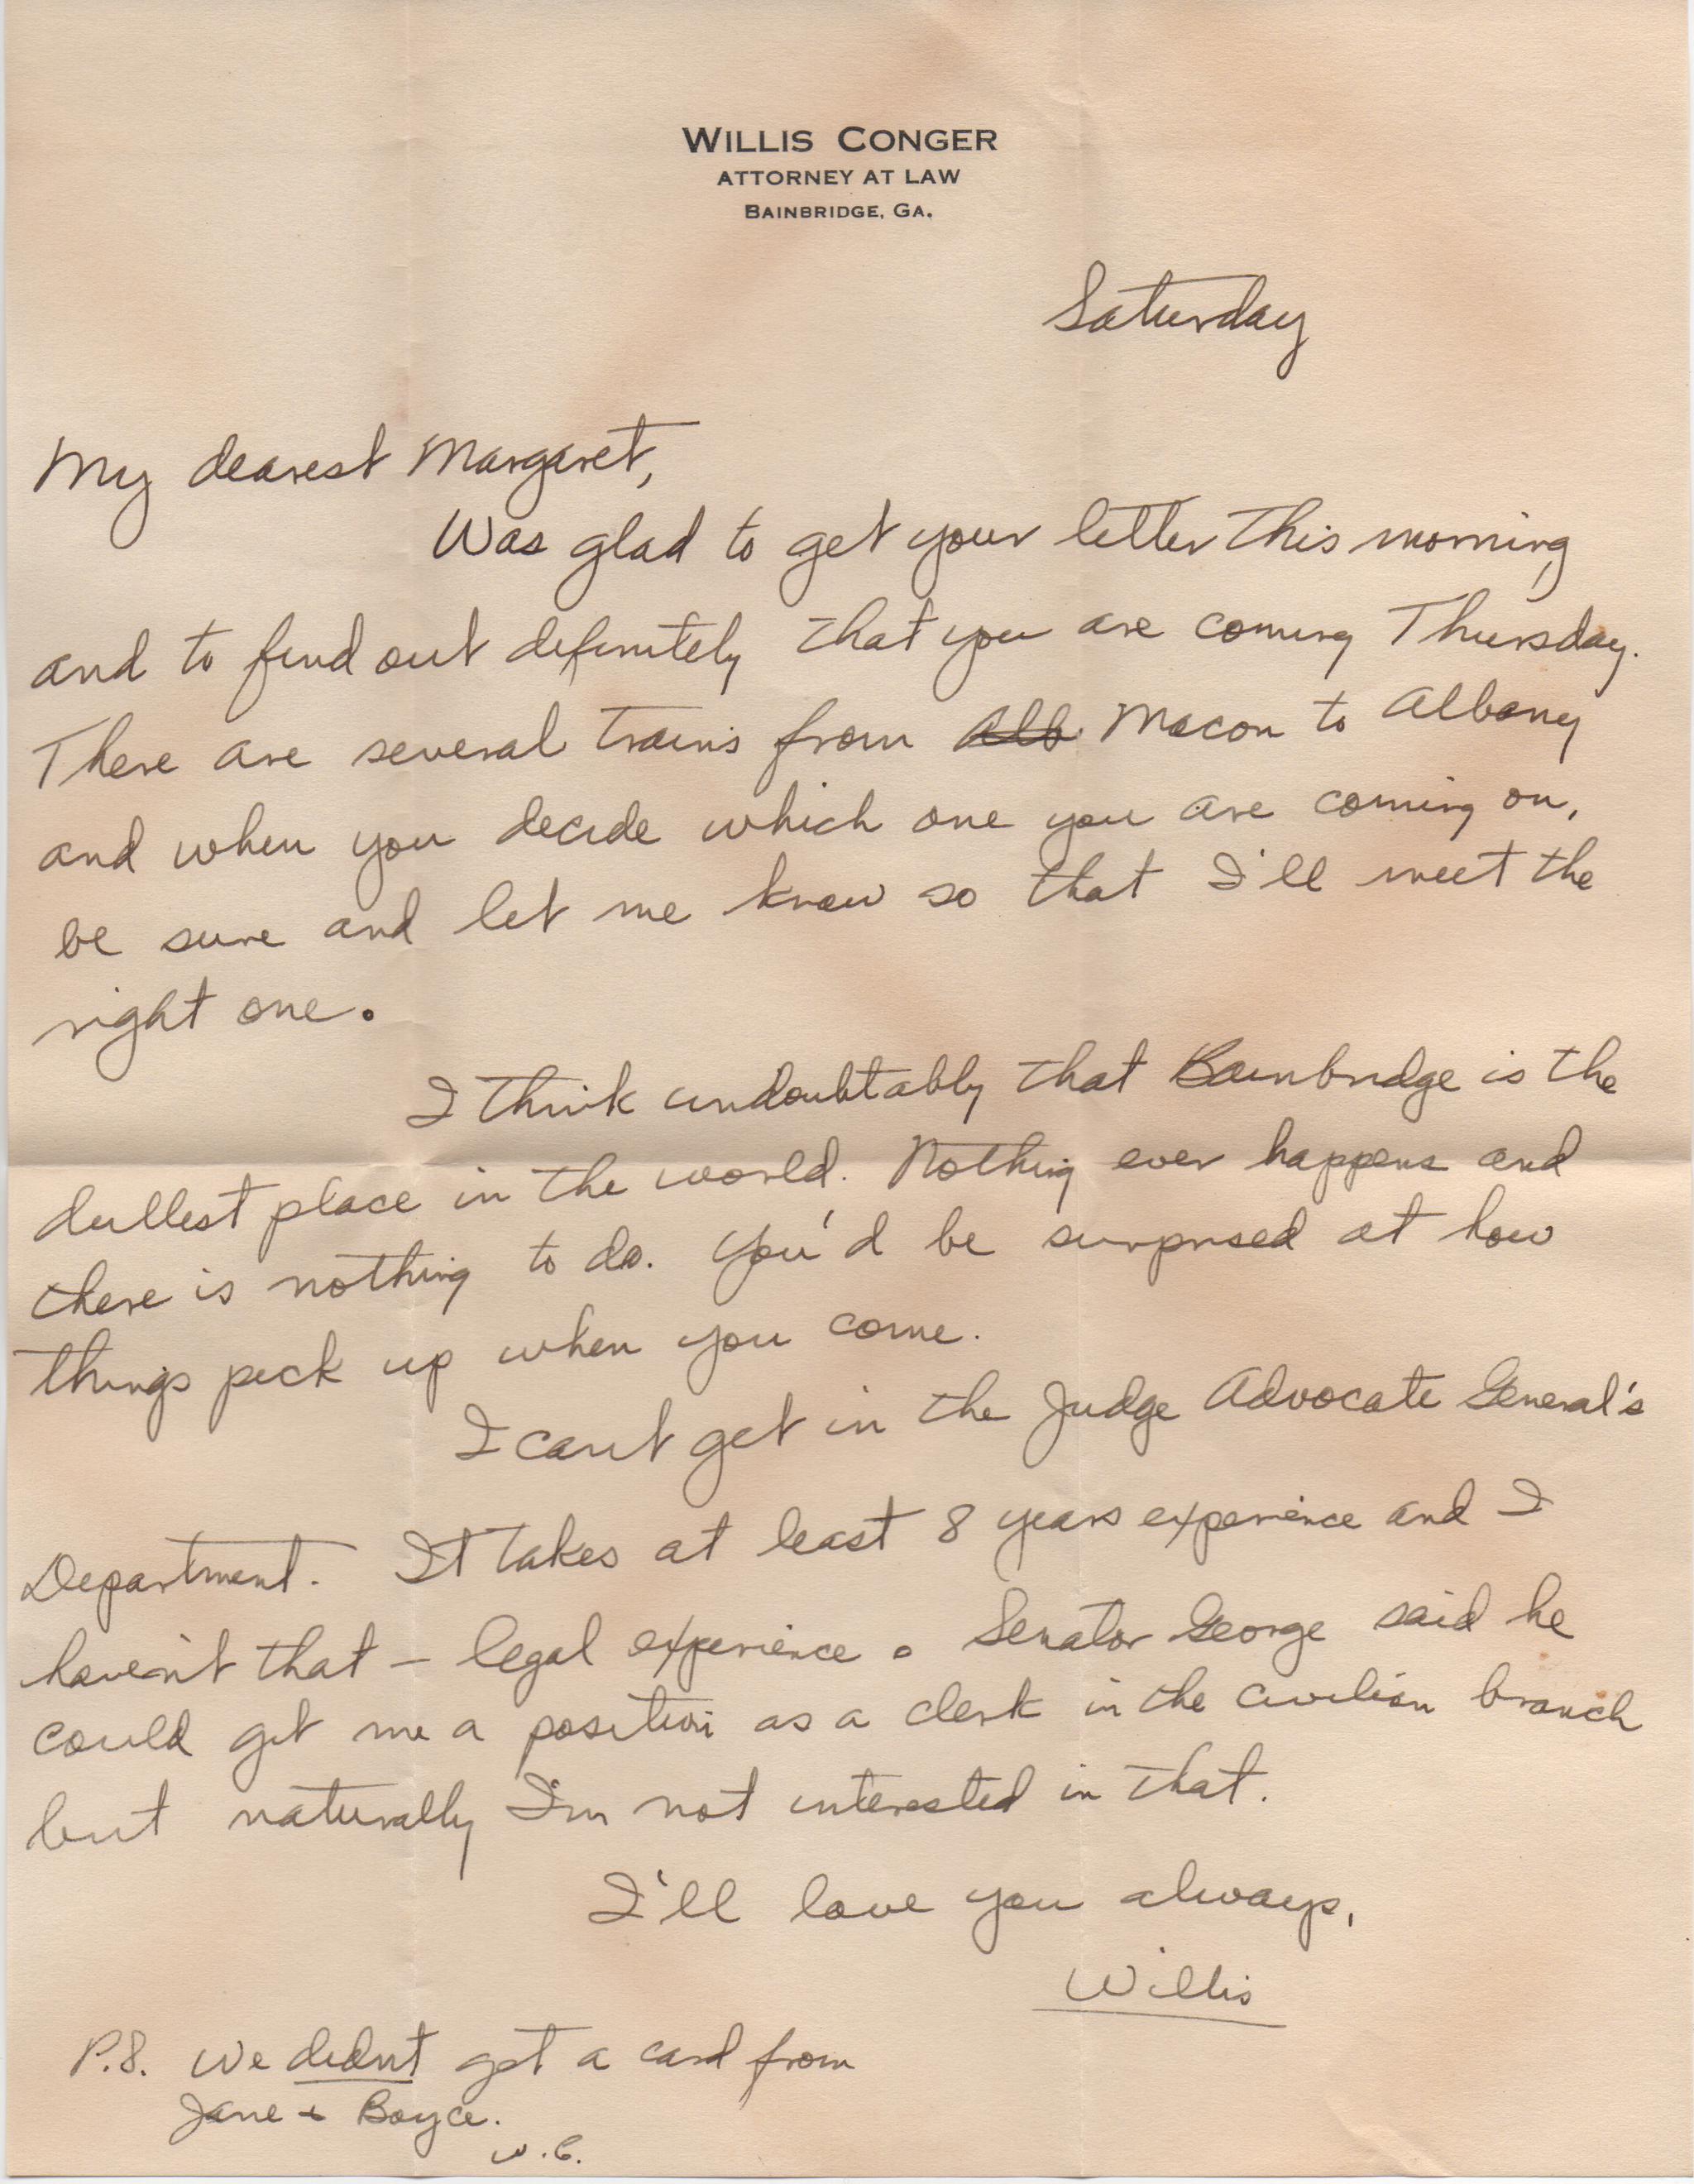 WILLIS CONGER
ATTORNEY AT LAW
BAINBRIDGE, GA.
Saturday
My dearest Margaret,
Was glad to get your letter this morning
and to find out definitely that you are coming Thursday.
There are several trains from Alb Macon to Albany
and when you decide which one you are coming on,
be sure and let me know so that I'll meet the
right one.
I think undoubtably that Bainbridge is the
dullest place in the world. Nothing ever happens and
there is nothing to do. You'd be surprised at how
things pick up when you come.
I can't get in the Judge Advocate General's
Department. It takes at least 8 years experience and I
haven't that — legal experience. Senator George said he
could get me a position as a clerk in the civilian branch
but naturally I'm not interested in that.
I'll love you always,
Willis
P.S. We didn't get a card from
Jane + Boyce.
W.C.